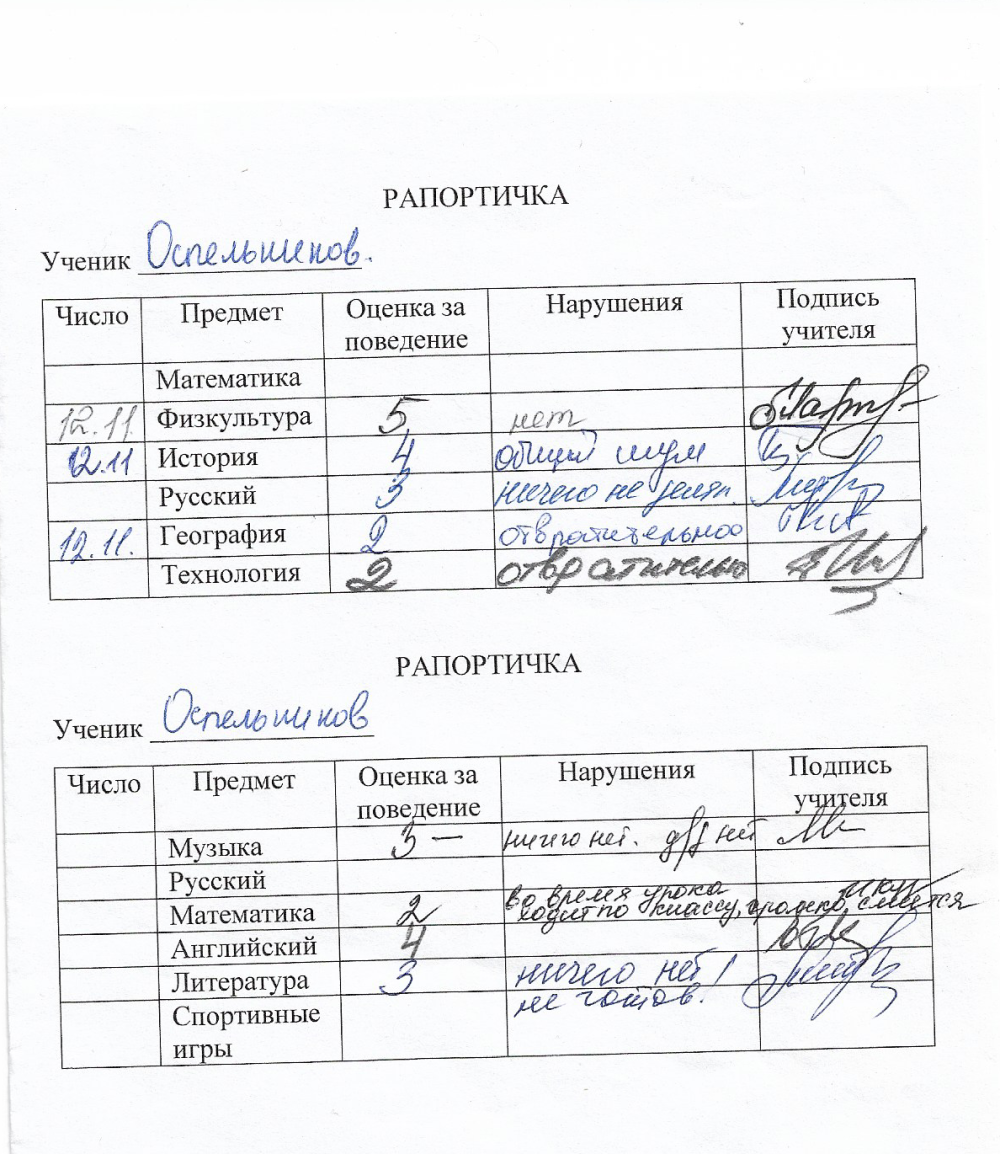 РАПОРТИЧКА
Ученик Оспельников.
Число Предмет Оценка за поведение Нарушения Подпись учителя
Математика
12.11. Физкультура 5 нет
12.11 История 4 общий шум
Русский 3 ничего не делал.
12.11. География 2 отвратительное
Технология 2 отвратительно
РАПОРТИЧКА
Ученик Оспельников
Число Предмет Оценка за поведение Нарушения Подпись учителя
Музыка 3 — ничего нет. д/з нет
Русский
Математика 2 во время урока
ходит по классу, громко смеётся
Английский 4
Литература 3 ничего нет!
не готов.
Спортивные
игры